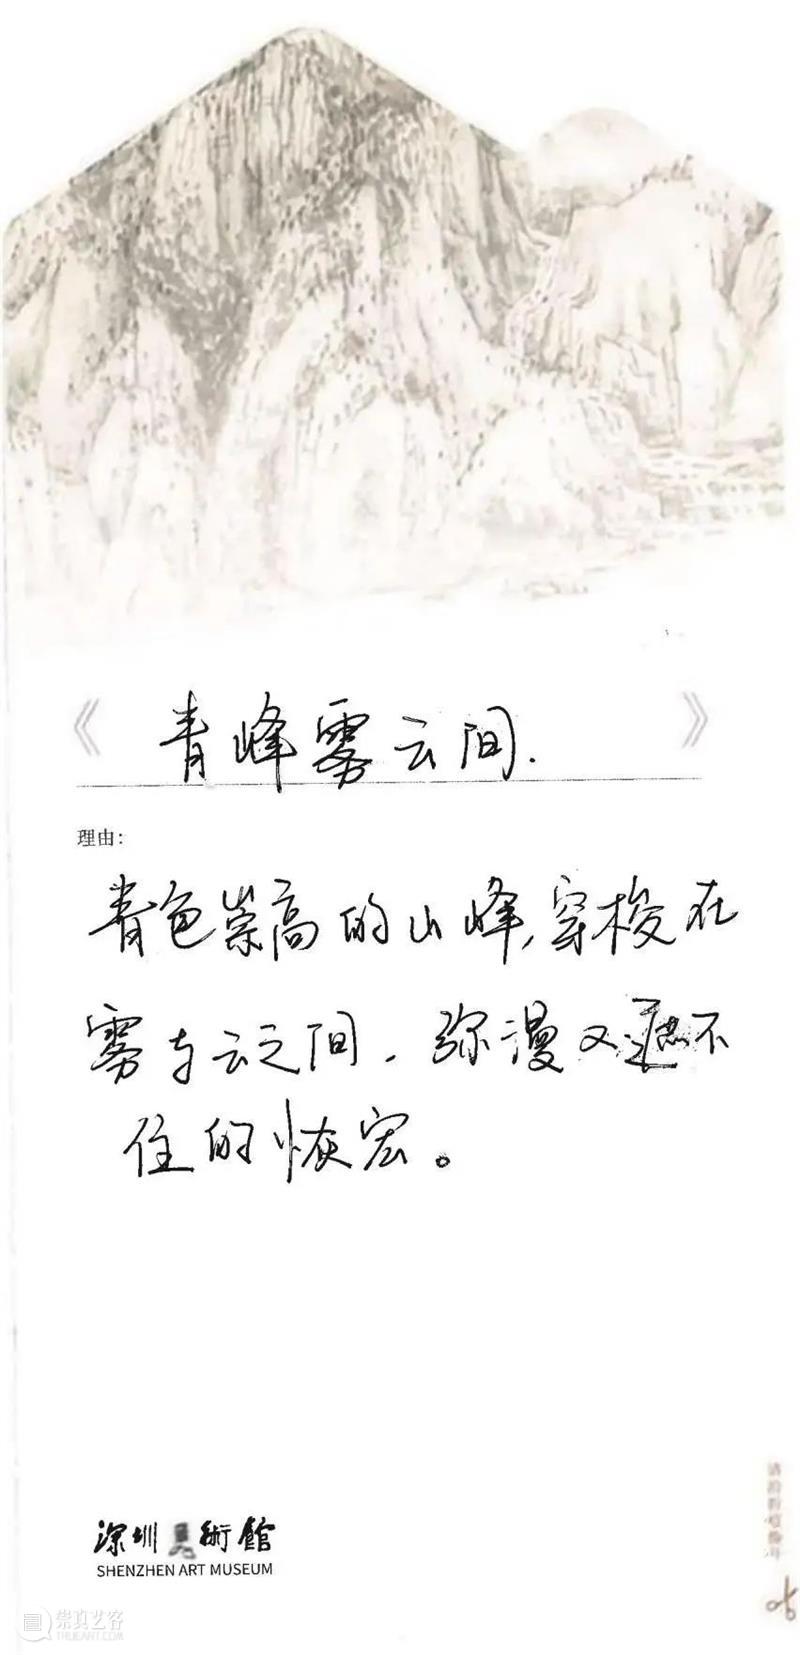 《青峰雾云间.》
理由：
青色崇高的山峰,穿梭在
雾与云之间，弥漫又遮不
住的恢宏。
深圳美術館
SHENZHEN ART MUSEUM
崇真艺客
HTTP://WWW.TRUEART.COM